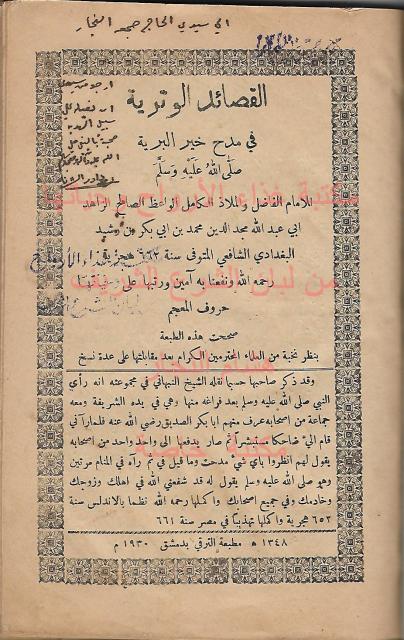 الى سيدي الحاج محمد النجار
القصائد الوترية
في مدح خير البرية
صَلَّى اللهُ عَلَيْهِ وَسَلَّمَ
للامام الفاضل والملاذ الكامل الواعظ الصالح الزاهد
ابي عبد الله مجد الدين محمد بن ابي بكر بن رشيد
البغدادي الشافعي المتوفى سنة هجرية
رحمه الله ونفعنا به آمين ورتبها على
حروف المعجم
صححت هذه الطبعة
بنظر نخبة من العلماء المحترمين الكرام بعد مقابلتها على عدة نسخ
وقد ذكر صاحبها حسبما نقله الشيخ النبهاني في مجموعته انه رأى
النبي صلى الله عليه وسلم بعد فراغه منها وهي في يده الشريفة ومعه
جماعة من اصحابه عرف منهم ابا بكر الصديق رضي الله عنه فلما رآني
قام الي ضاحكا مستبشرا ثم صار يدفعها الى واحد واحد من اصحابه
يقول لهم انظروا باي شيء مدحت وما قيل في ثم رآه في المنام مرتين
وهو صلى الله عليه وسلم يقول له قد شفعني الله في اهلك وزوجك
وخادمك وفي جميع اصحابك واكملها رحمه الله نظما بالاندلس سنة
٦٥٢ هجرية واكملها تهذيبا في مصر سنة ٦٦١
١٣٤٨ ه مطبعة الترقي بدمشق ١٩٣٠ م
مكتبة غذاء الأرواح
من لبنان الشرع الشريف
هشام النجار
مكتبة خاصة